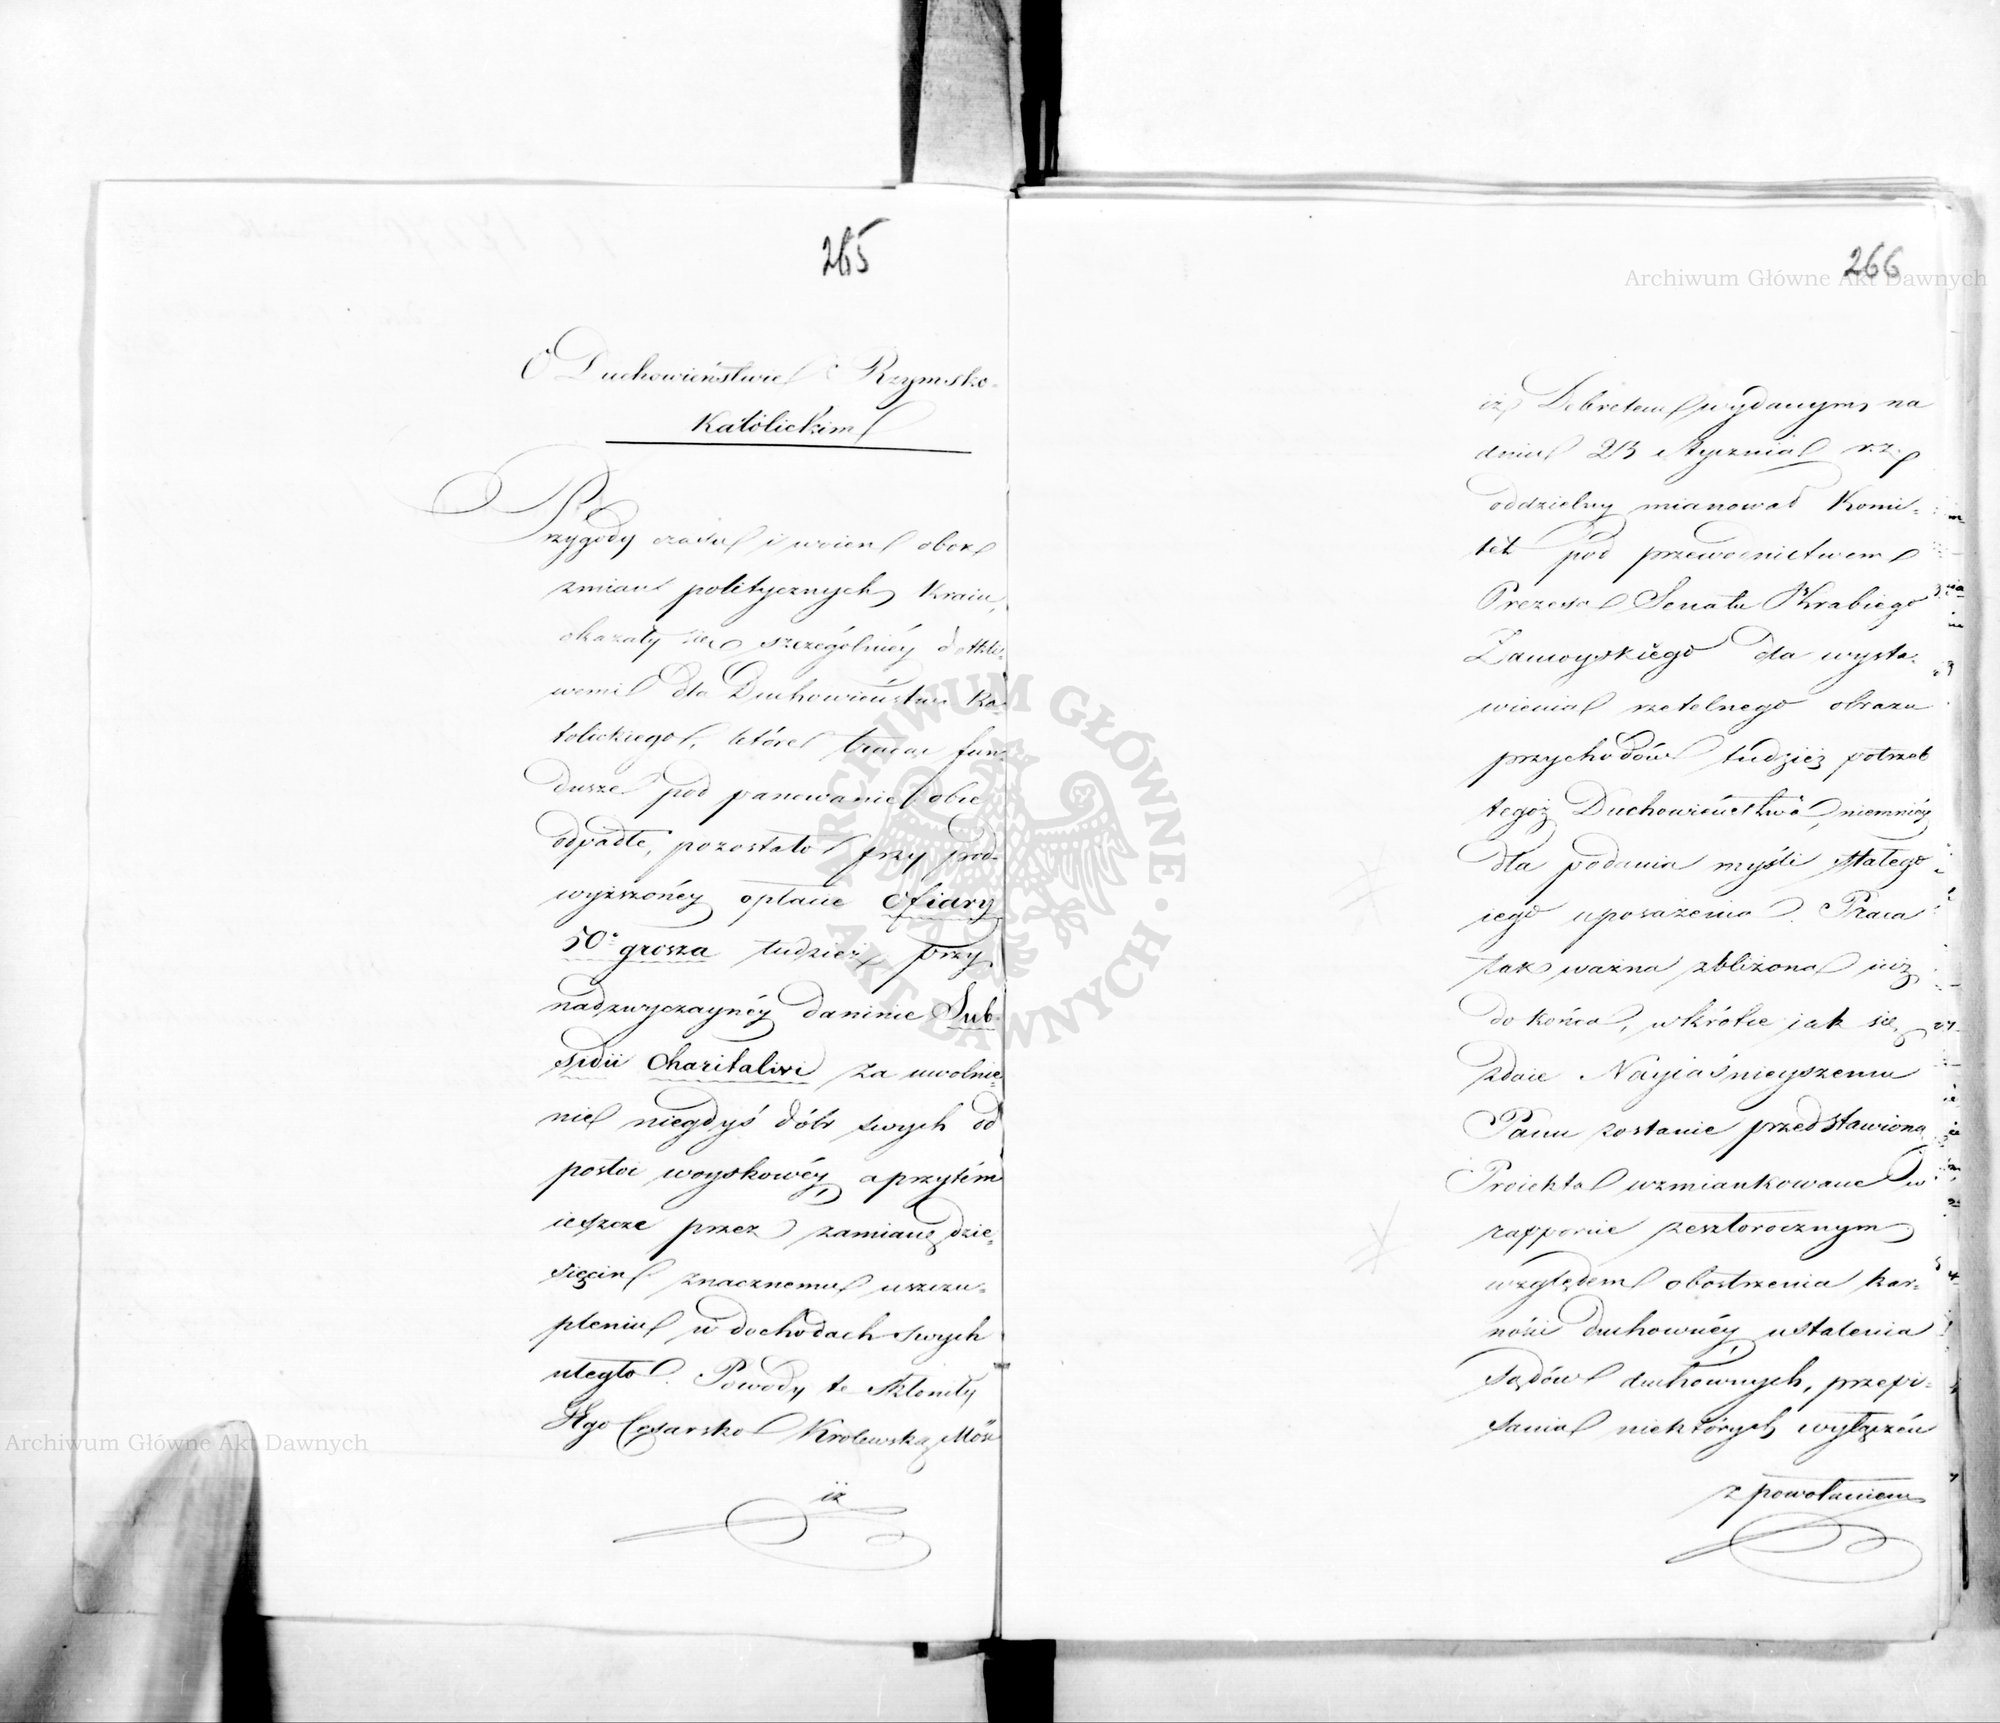 265
O Duchowieństwie Rzymsko-
Katolickim
Przygody czasu i woien obok
zmian politycznych Kraiu,
okazały się szczególniéy dotkli-
wemi dla Duchowieństwa Ka-
tolickiego, które tracąc fun-
dusze pod panowanie obce
odpadłe, pozostało przy pod-
wyższonéy opłacie Ofiary
50o grosza tudzież przy
nadzwyczaynéy daninie Sub-
sidii Charitativi za uwolnie-
nie niegdyś dóbr swych od
postoi woyskowéy, a przytém
ieszcze przez zamianę dzie-
sięcin znacznemu uszczu-
pleniu w dochodach swych
uległo. Powody te skłoniły
JKgo Cesarsko Krolewską Mość
iż
266
iż Dekretem wydanym na
dniu 23 Stycznia r. z.
oddzielny mianował Komi-
tet pod przewodnictwem
Prezesa Senatu Hrabiego
Zamoyskiego dla wysta-
wienia rzetelnego obrazu
przychodów tudzież potrzeb
tegoż Duchowieństwa, niemniéy
dla podania myśli stałego
iego uposażenia. Praca
tak ważna zbliżona iuż
do końca, wkrótce jak się
zdaie Nayiaśnieyszemu
Panu zostanie przedstawioną
Proiekta wzmiankowane w
rapporcie zeszłorocznym
względem obostrzenia kar-
ności duchownéy, ustalenia
sądów duchownych, przepi-
sania niektórych wyłączeń
z powołaniem
Archiwum Główne Akt Dawnych
Archiwum Główne Akt Dawnych
ARCHIWUM GŁÓWNE · AKT DAWNYCH ·